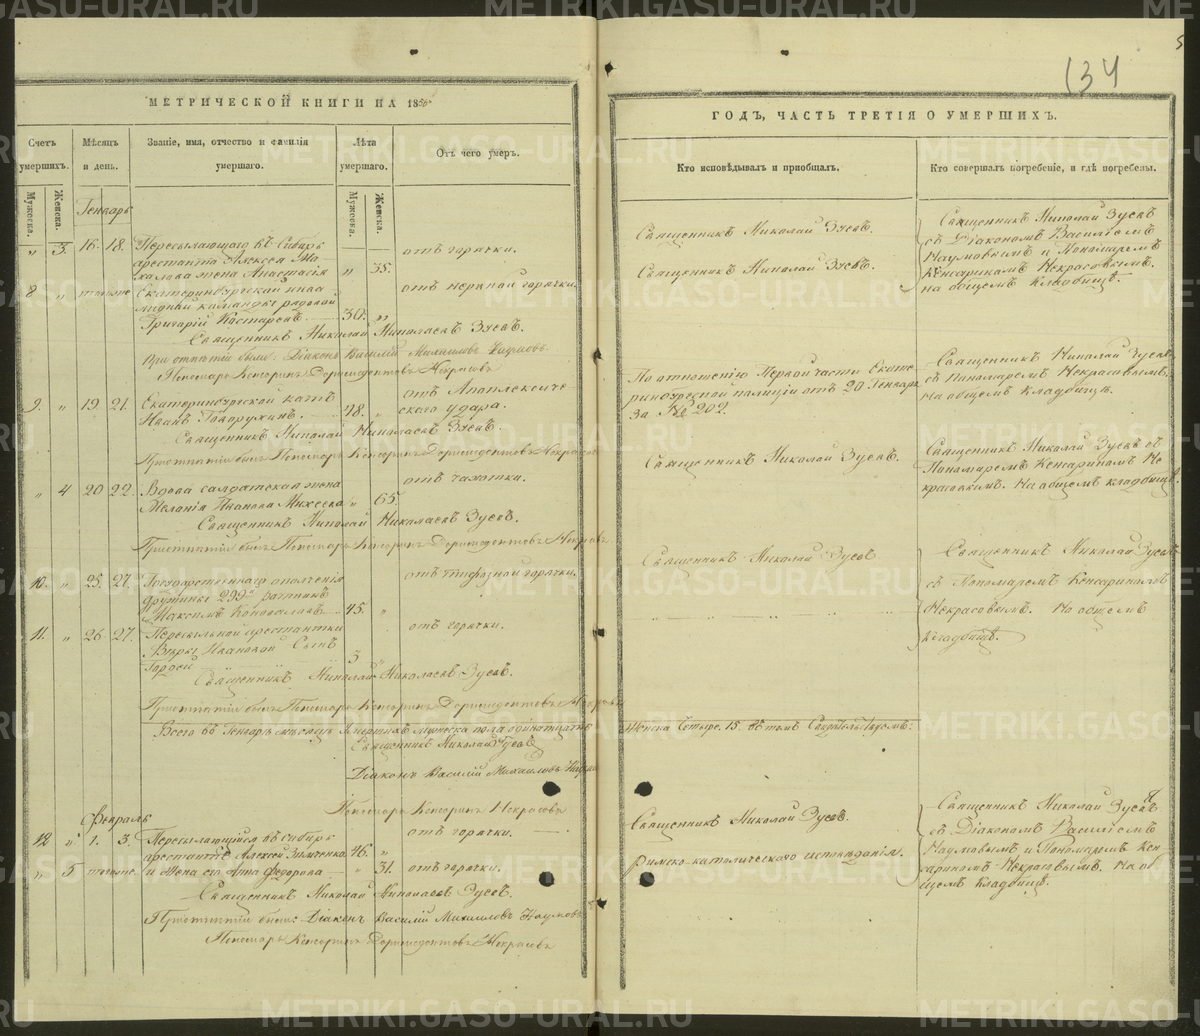 134
5
МЕТРИЧЕСКОЙ КНИГИ НА 1856
ГОДЪ, ЧАСТЬ ТРЕТІЯ О УМЕРШИХЪ.
Счетъ умершихъ.
Мѣсяцъ и день.
Званіе, имя, отчество и фамилія умершаго.
Лѣта умершаго.
Отъ чего умеръ.
Кто исповѣдывалъ и пріобщалъ.
Кто совершалъ погребеніе, и гдѣ погребены.
Мужеска.
Женска.
Мужеска.
Женска.
Генварь
" 3. 16. 18. Пересылающаго въ Сибирь
арестанта Алексея
жена Анастасія " 35. отъ горячки.
Священникъ Николай Зуевъ.
Священникъ Николай Зуевъ
съ Діакономъ Василіемъ
Наумовымъ и Пономаремъ
Кенсариномъ Некрасовымъ.
на общемъ Кладбищѣ.
8 " тогоже Екатеринбургской инва
лидной команды рядовой
Григорій Костаревъ. 30. " отъ нервной горячки.
Священникъ Николай Зуевъ.
Священникъ Николай Николаевъ Зуевъ.
При отпѣтіи были: Діаконъ Василій Михаиловъ Наумовъ
Пономарь Кенсоринъ Дормидонтовъ Некрасовъ
9. " 19. 21. Екатеринбургской катъ
Иванъ 48. " отъ Апоплексиче
скаго удара.
По отношенію Первой части Екате
ринбургской полиціи отъ 20 Генваря
за № 202.
Священникъ Николай Зуевъ
съ Пономаремъ Некрасовымъ.
На общемъ Кладбищѣ.
Священникъ Николай Николаевъ Зуевъ.
При отпѣтіи былъ Пономарь Кенсоринъ Дормидонтовъ Некрасовъ
" 4 20 22. Вдова солдатская жена
Меланія Иванова Михеева " 65 отъ чахотки.
Священникъ Николай Зуевъ.
Священникъ Николай Зуевъ съ
Пономаремъ Кенсариномъ Не
красовымъ. На общемъ кладбищѣ.
Священникъ Николай Николаевъ Зуевъ.
При отпѣтіи былъ Пономарь Кенсоринъ Дормидонтовъ Некрасовъ
10. " 25. 27. Государственнаго ополченія
дружины ратникъ
Максимъ Коновалова 45. " отъ тифозной горячки.
Священникъ Николай Зуевъ
Священникъ Николай Зуевъ
съ Пономаремъ Кенсариномъ
Некрасовымъ. На общемъ
Кладбищѣ.
11. " 26 27. Пересыльной арестантки
Ивановой Сынъ
Гордей 3 " отъ горячки.
Священникъ Николай Николаевъ Зуевъ.
При отпѣтіи былъ Пономарь Кенсоринъ Дормидонтовъ Некрасовъ
Всего въ Генварѣ мѣсяцѣ умершихъ мужеска пола одиннатцать
Женска Четыре. 15. Въ томъ Свидѣтельствуемъ:
Священникъ Николай Зуевъ
Діаконъ Василій Михаиловъ Наумовъ
Пономарь Кенсоринъ Некрасовъ
Февраль
12 " 1. 3. Пересылающійся въ Сибирь
арестантъ Алексей 46. " отъ горячки.
Священникъ Николай Зуевъ.
Священникъ Николай Зуевъ
съ Діакономъ Василіемъ
Наумовымъ и Пономаремъ Кен
сариномъ Некрасовымъ. На об
щемъ Кладбищѣ.
" 5 тогоже и Жена его Анна Федорова " 31. отъ горячки.
Римско-католическаго исповѣданія.
Священникъ Николай Николаевъ Зуевъ.
При отпѣтіи были Діаконъ Василій Михаиловъ Наумовъ
Пономарь Кенсоринъ Дормидонтовъ Некрасовъ
METRIKI.GASO-URAL.RU